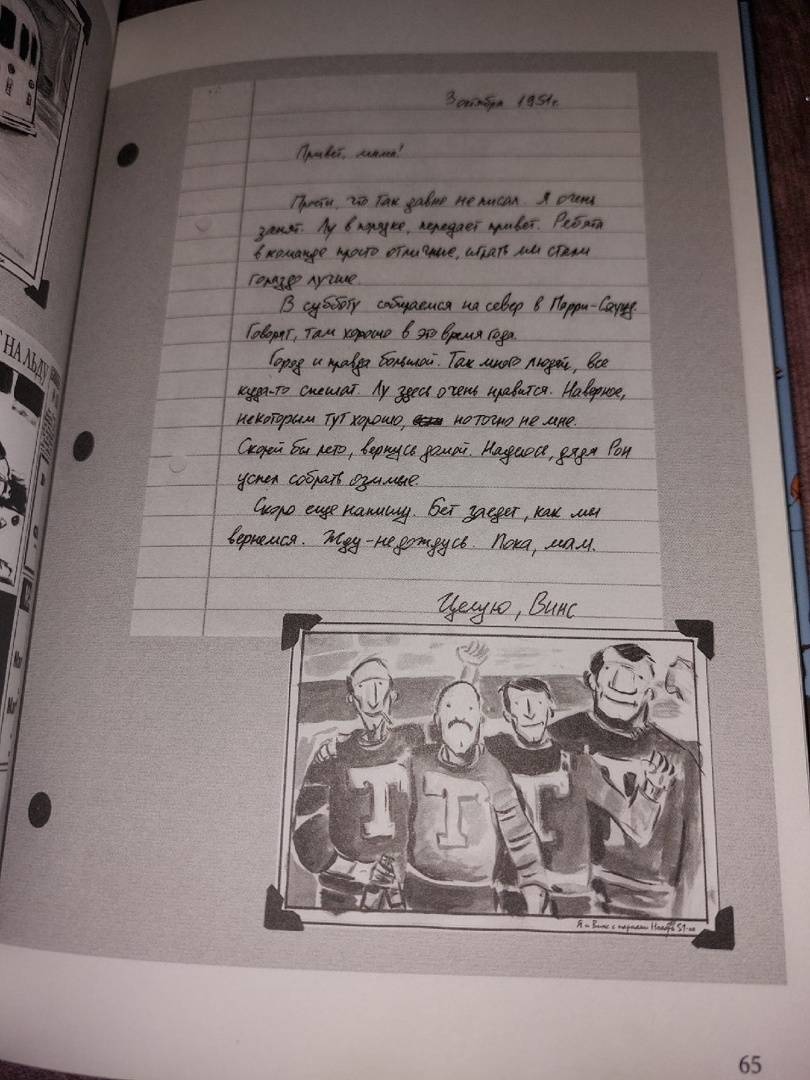 3 октября 1951г.
Привет, мама!
Прости, что так давно не писал. Я очень
занят. Лу в порядке, передает привет. Ребята
в команде просто отличные, играть мы стали
гораздо лучше.
В субботу собираемся на север в Пэрри-Саунд.
Говорят, там хорошо в это время года.
Город и правда большой. Так много людей, все
куда-то спешат. Лу здесь очень нравится. Наверное,
некоторым тут хорошо, но точно не мне.
Скорей бы лето, вернусь домой. Надеюсь, дядя Рон
успел собрать озимые.
Скоро еще напишу. Бет заедет, как мы
вернемся. Жду-не дождусь. Пока, мам.
Целую, Винс
НА ЛЬДУ
T T T
Я и Винс с парнями Ноябрь 51-го
65